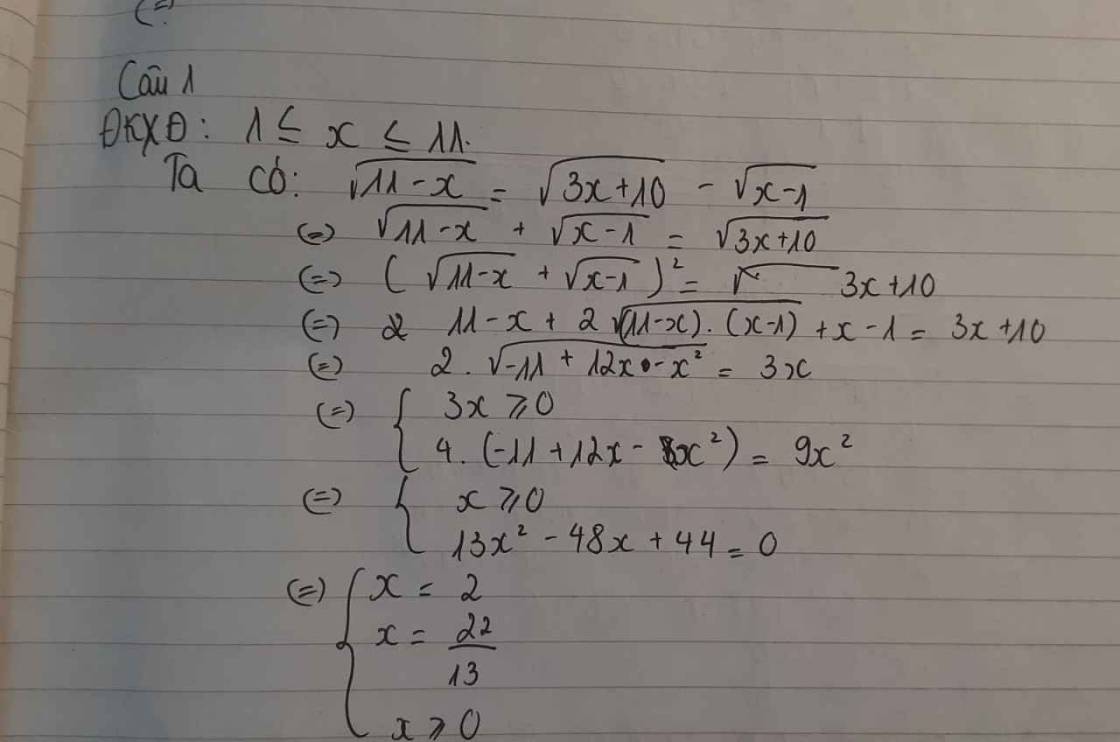 (=)
Câu 1
ĐKXĐ: 1 ≤ x ≤ 11.
Ta có: √(11-x) = √(3x+10) - √(x-1)
(=) √(11-x) + √(x-1) = √(3x+10)
(=) (√(11-x) + √(x-1))² = √ 3x+10
(=) 11-x + 2√((11-x).(x-1)) + x-1 = 3x+10
(=) 2.√(-11+12x-x²) = 3x
(=) { 3x ⩾ 0
4.(-11+12x-x²) = 9x²
(=) { x ⩾ 0
13x² - 48x + 44 = 0
(=) { x = 2
x = 22/13
x ⩾ 0